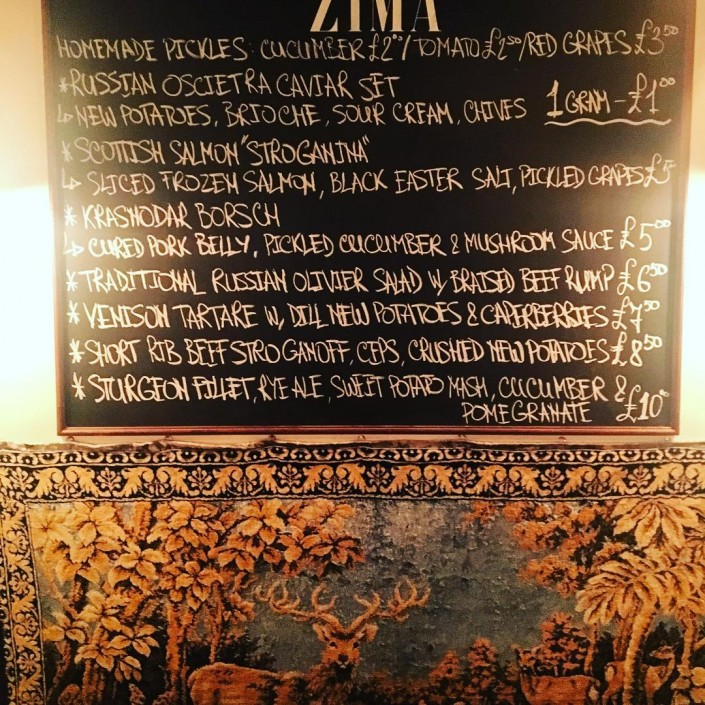 ZIMA
HOMEMADE PICKLES: CUCUMBER £2⁰⁰/TOMATO £2⁵⁰/RED GRAPES £3⁵⁰
*RUSSIAN OSCIETRA CAVIAR SET
↳ NEW POTATOES, BRIOCHE, SOUR CREAM, CHIVES 1 GRAM - £1⁰⁰
* SCOTTISH SALMON "STROGANINA"
↳ SLICED FROZEN SALMON, BLACK EASTER SALT, PICKLED GRAPES £5
* KRASNODAR BORSCH
↳ CURED PORK BELLY, PICKLED CUCUMBER & MUSHROOM SAUCE £5⁰⁰
* TRADITIONAL RUSSIAN OLIVIER SALAD W/ BRAISED BEEF RUMP £6⁵⁰
* VENISON TARTARE W/ DILL NEW POTATOES & CAPERBERRIES £7⁵⁰
* SHORT RIB BEEF STROGANOFF, CEPS, CRUSHED NEW POTATOES £8⁵⁰
* STURGEON FILLET, RYE ALE, SWEET POTATO MASH, CUCUMBER &
POMEGRANATE £10⁰⁰